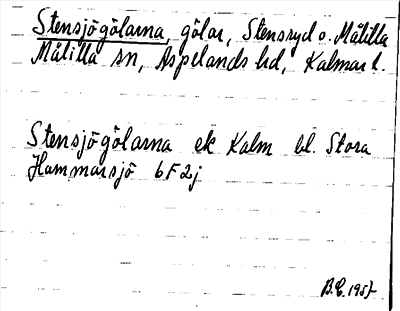 Stensjögölarna, gölar, Stensryd o. Målilla
Målilla sn, Aspelands hd, Kalmar l.
Stensjögölarna ek Kalm bl. Stora
Hammarsjö 6F2j
B.E. 1957